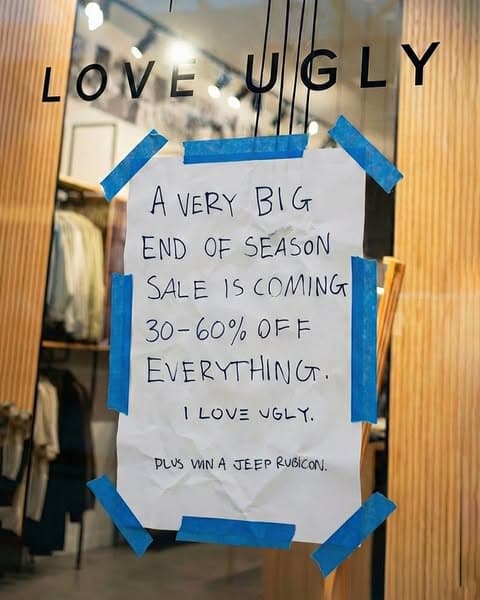 LOVE UGLY
A VERY BIG
END OF SEASON
SALE IS COMING
30-60% OFF
EVERYTHING.
I LOVE UGLY.
PLUS WIN A JEEP RUBICON.